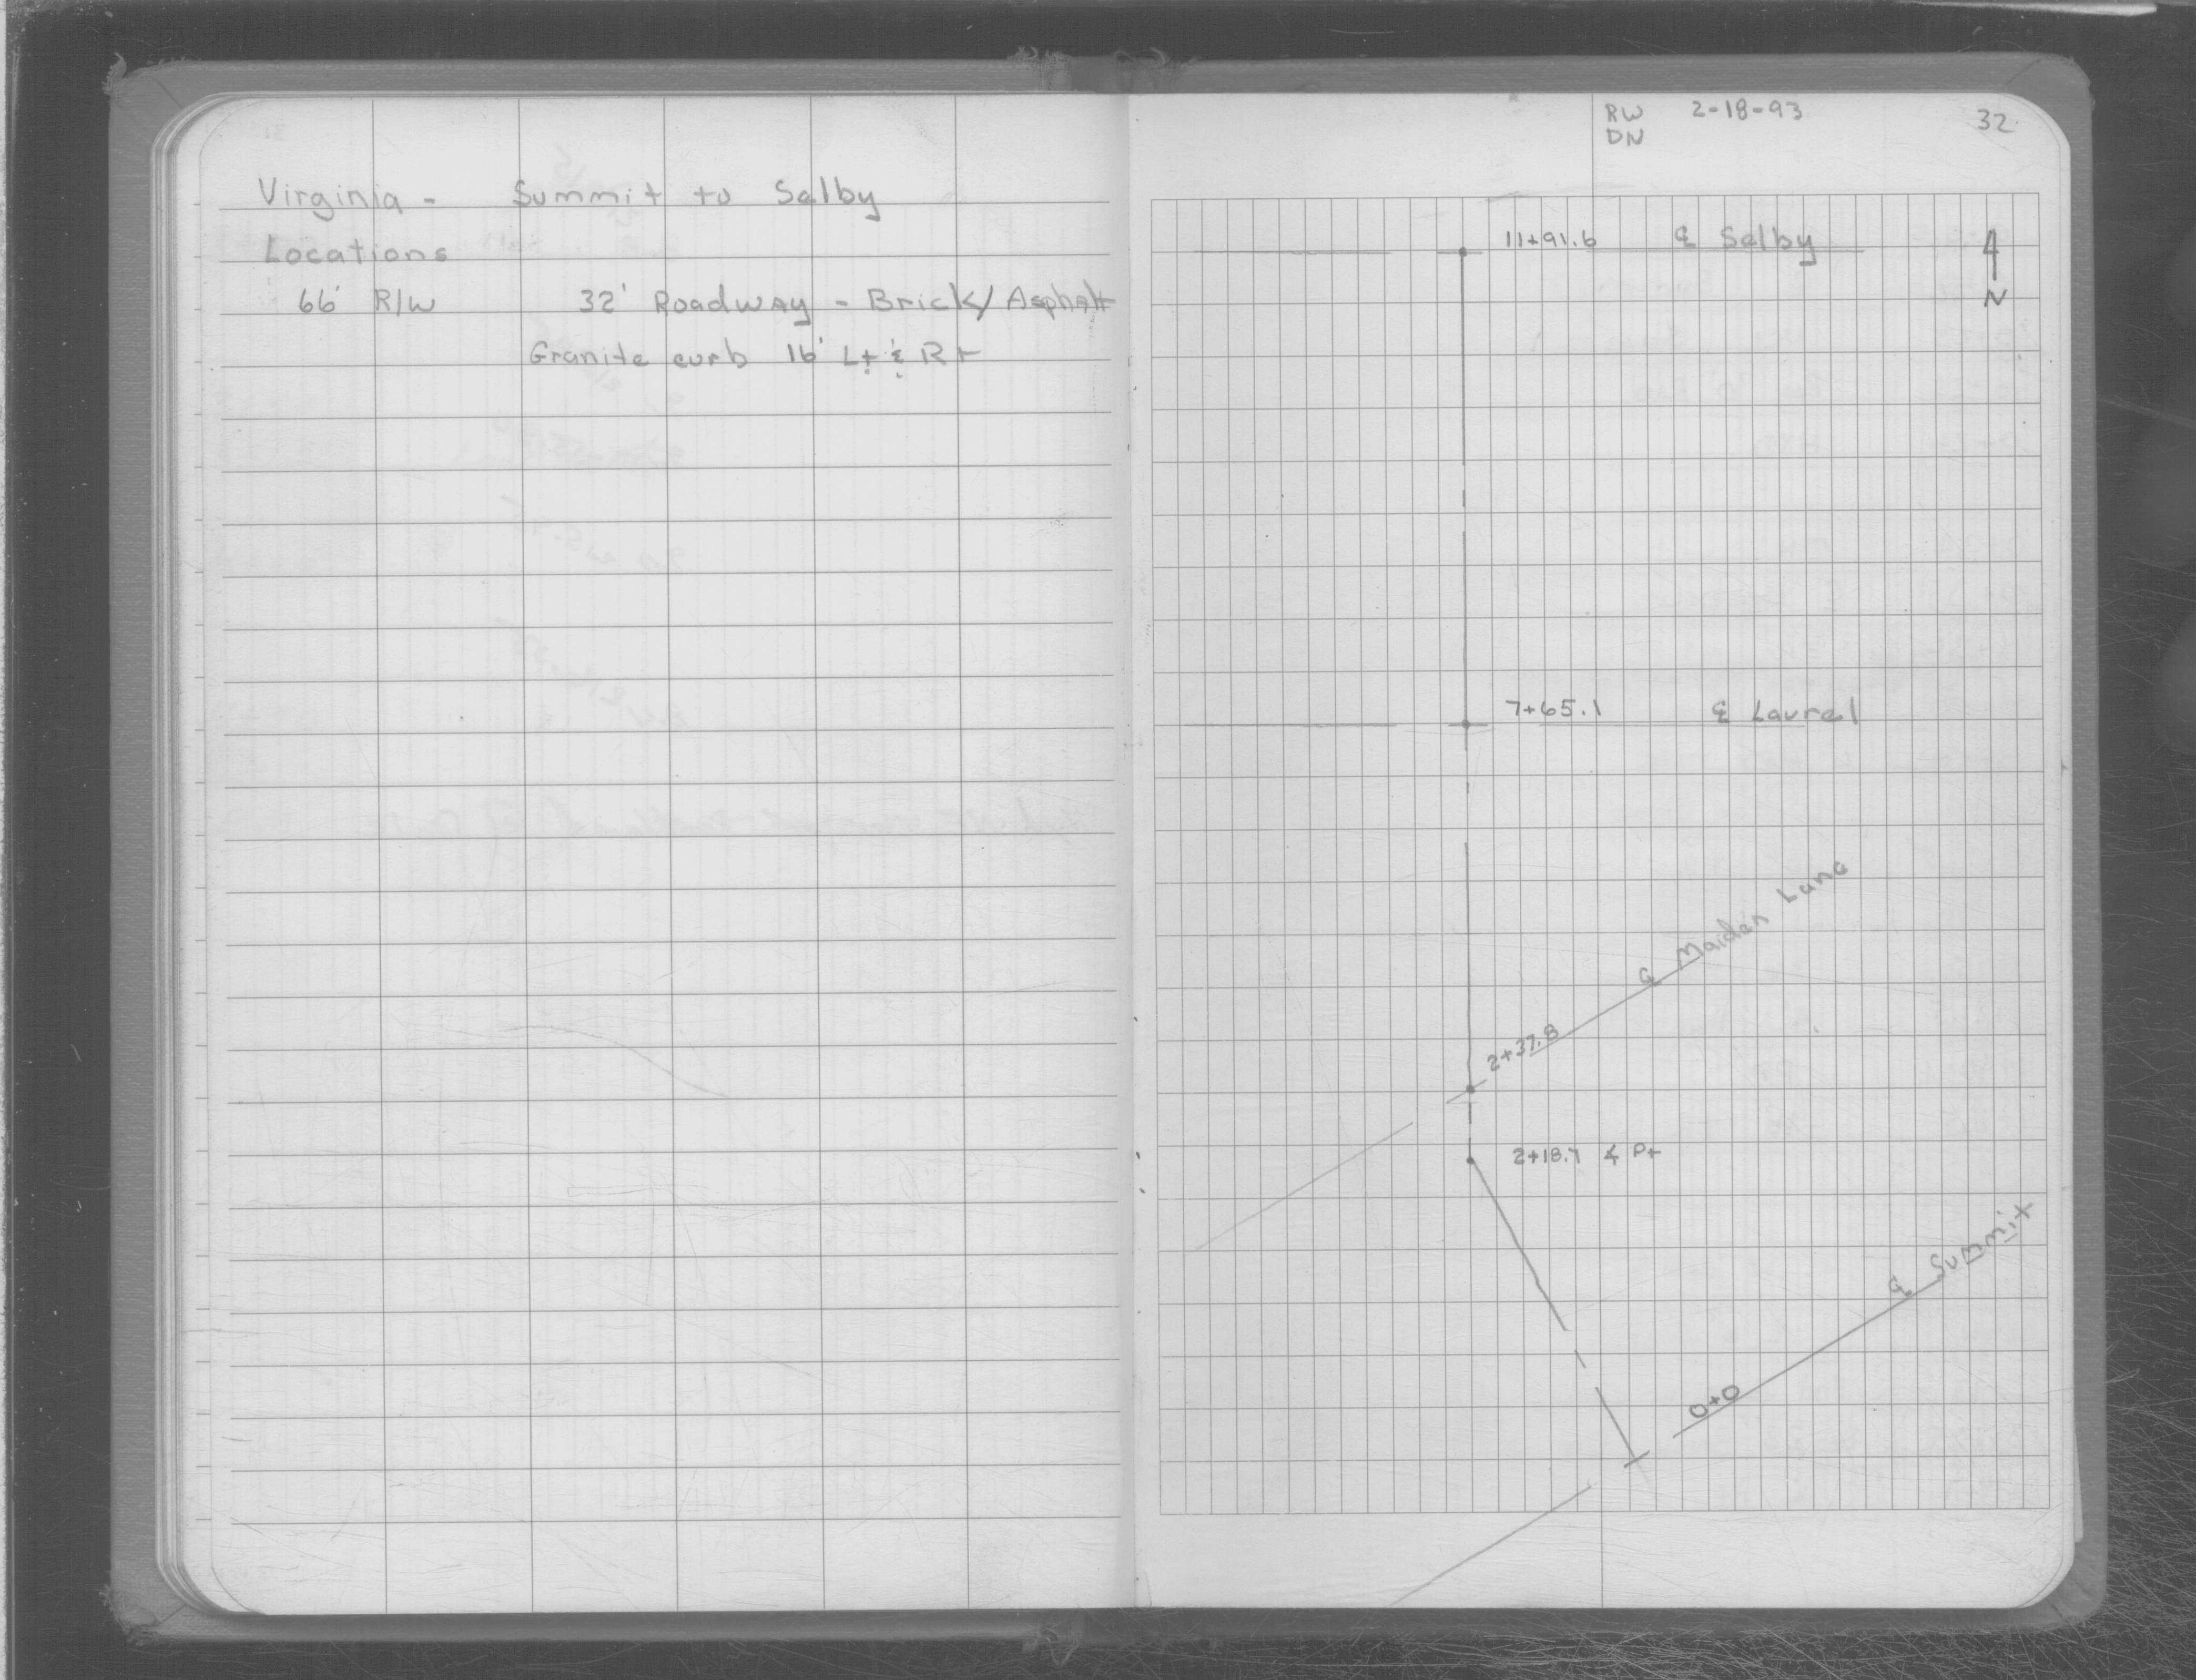 Virginia - Summit to Selby
Locations
66' R/W 32' Roadway - Brick/Asphalt
Granite curb 16' Lt & Rt
RW 2-18-93 32
DN
11+91.6 ℄ Selby
N
7+65.1 ℄ Laurel
℄ Maiden Lane
2+37.8
2+18.7 ∡ Pt
℄ Summit
0+0